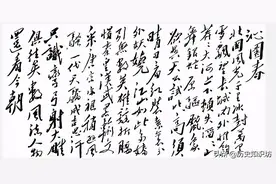 沁园春
北国风光千里冰封万里
雪飘望长城内外惟馀
莽莽大河上下顿失滔滔山
舞银蛇原驰腊象欲
与天公试比高须
晴日看红装素裹分
外妖娆江山如此多娇
引无数英雄竞折腰
惜秦皇汉武略输文
采唐宗宋祖稍逊风
骚一代天骄成吉思汗
只识弯弓射大雕
俱往矣数风流人物
还看今朝